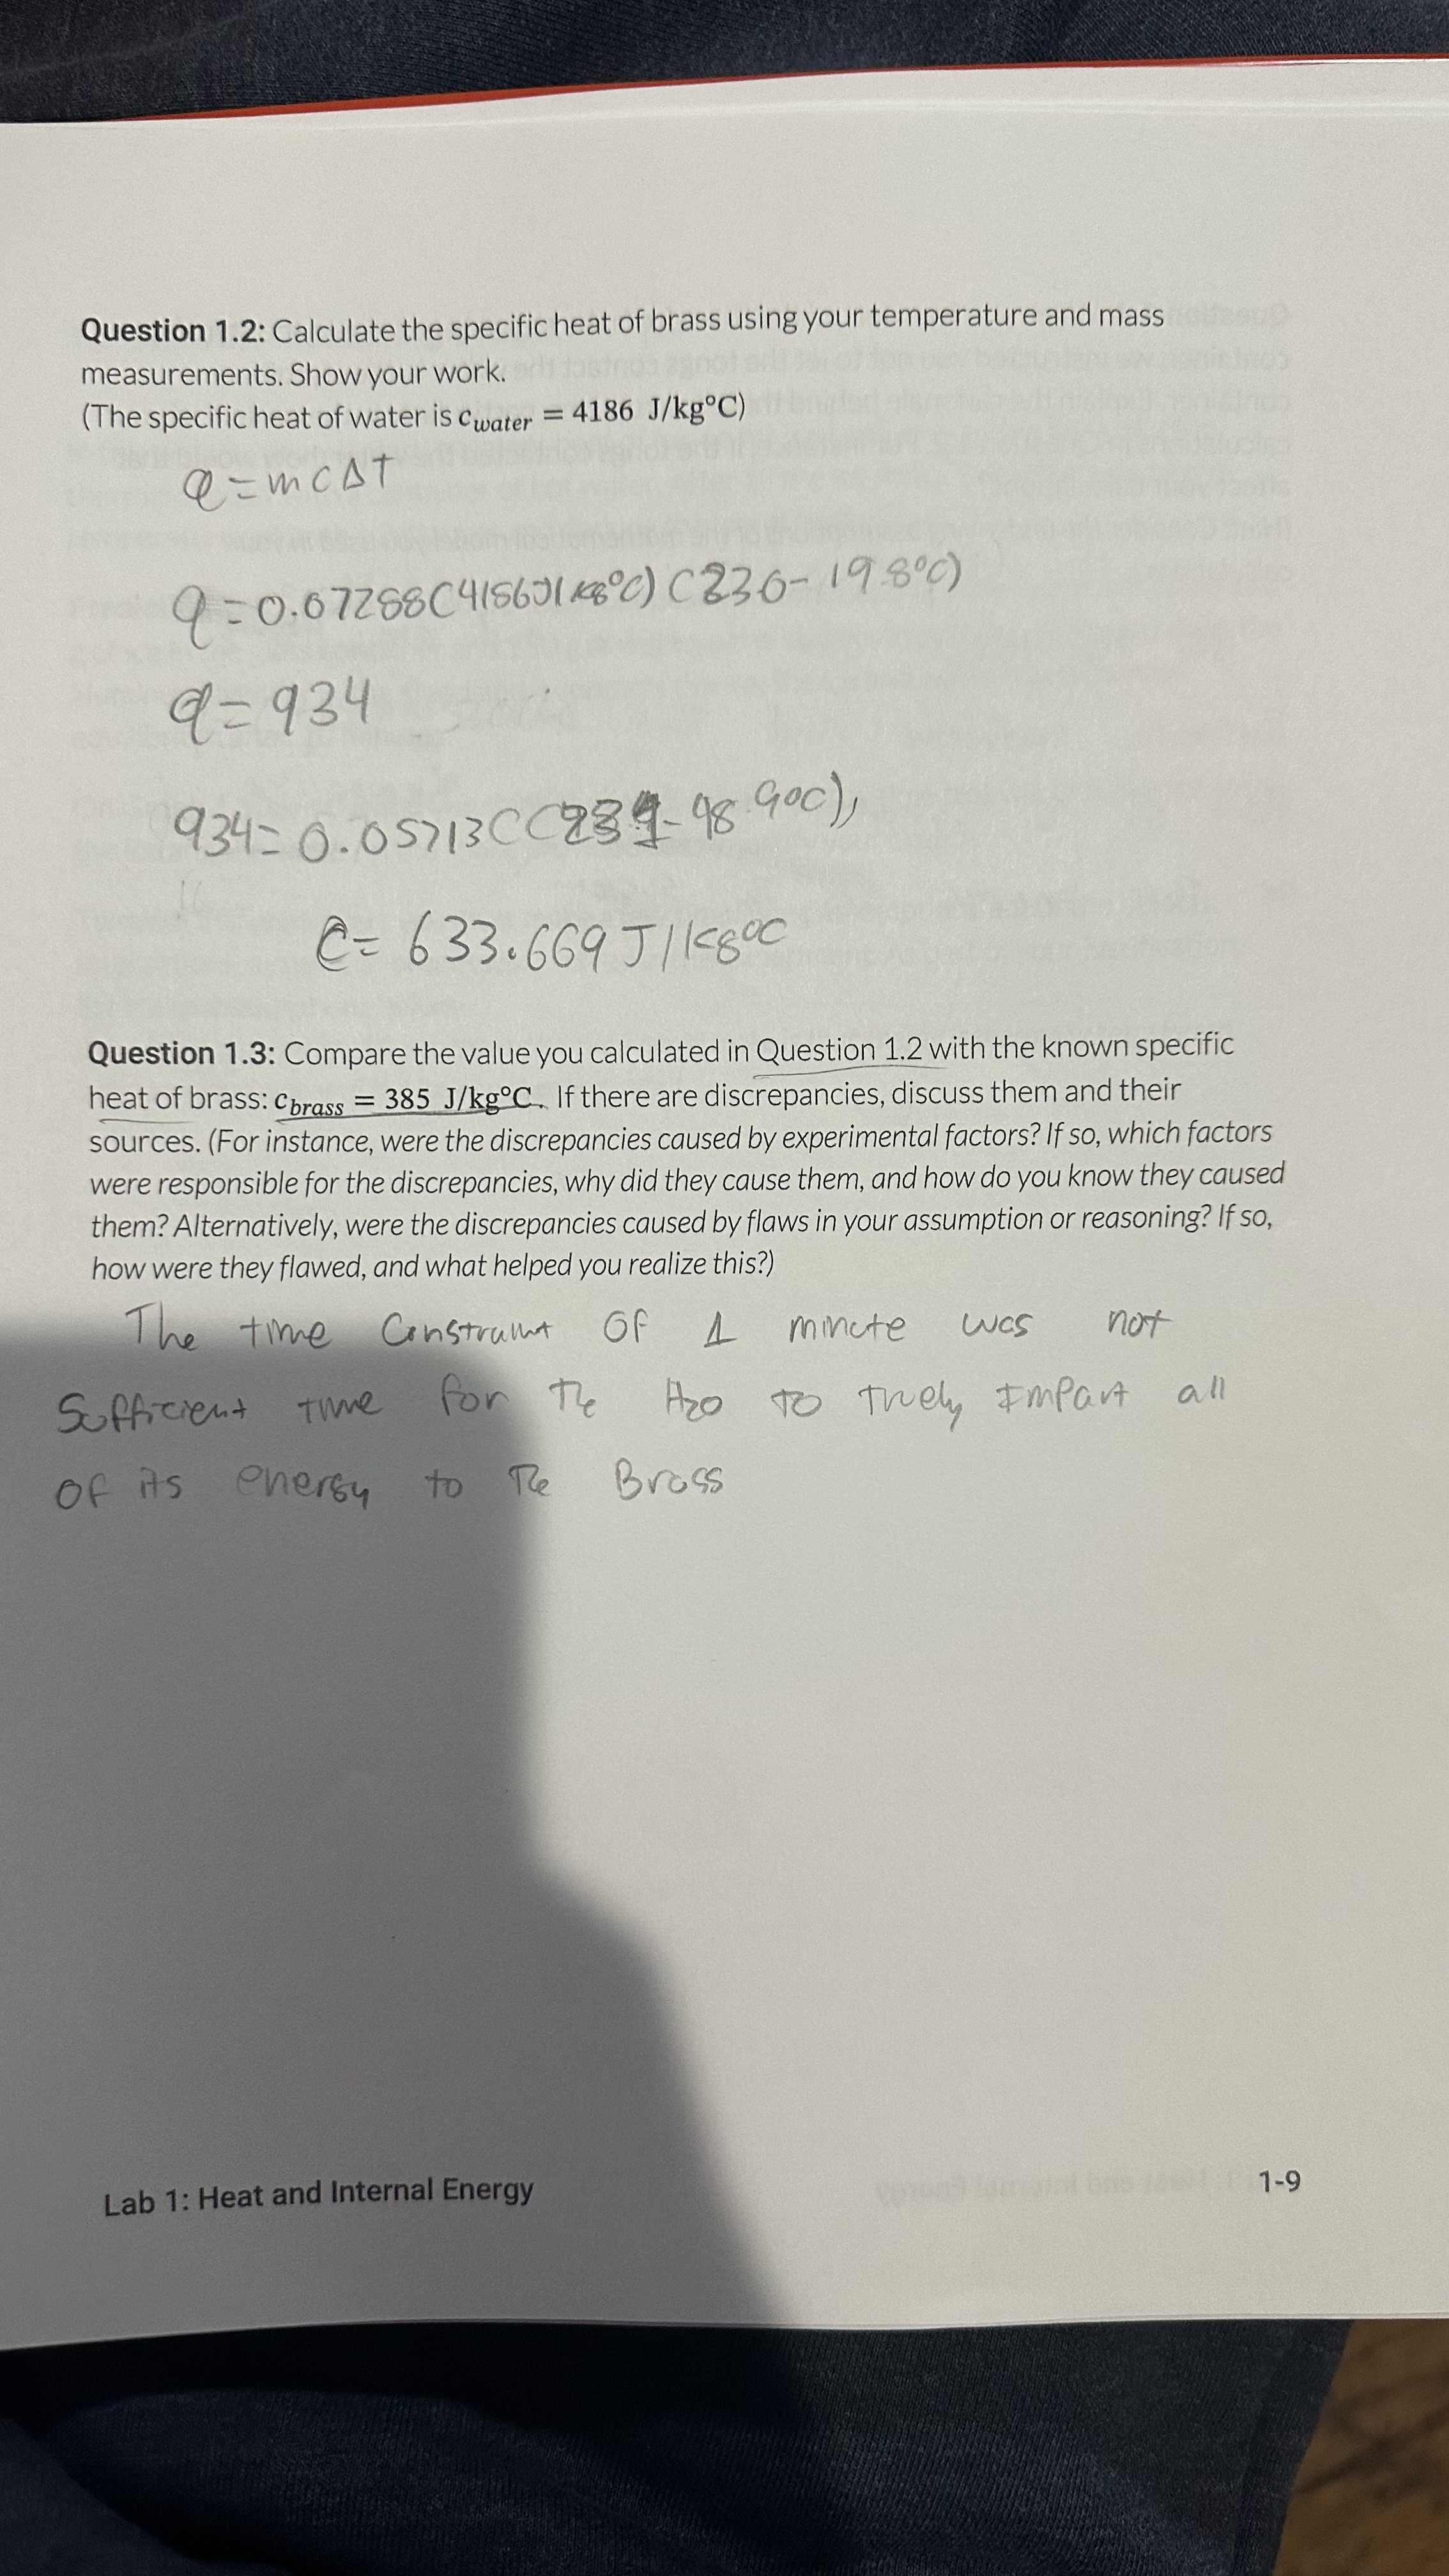 Question 1.2: Calculate the specific heat of brass using your temperature and mass
measurements. Show your work.
(The specific heat of water is c_water = 4186 J/kg°C)
Q = mcΔT
q = 0.07288(4186J/kg°C)(230 - 19.8°C)
q = 934
934 = 0.05713C( - 98.9°C)
C = 633.669 J/kg°C
Question 1.3: Compare the value you calculated in Question 1.2 with the known specific
heat of brass: c_brass = 385 J/kg°C. If there are discrepancies, discuss them and their
sources. (For instance, were the discrepancies caused by experimental factors? If so, which factors
were responsible for the discrepancies, why did they cause them, and how do you know they caused
them? Alternatively, were the discrepancies caused by flaws in your assumption or reasoning? If so,
how were they flawed, and what helped you realize this?)
The time constraint of 1 minute was not
Sufficient time for the H2O to truely Impart all
of its energy to the Brass
Lab 1: Heat and Internal Energy
1-9